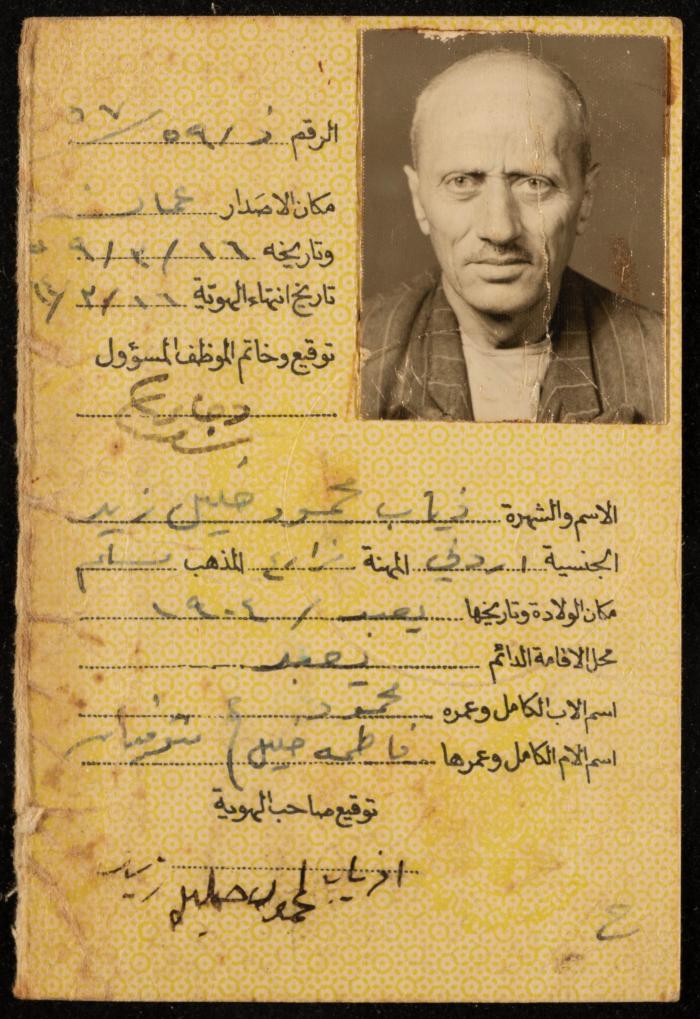 الرقم ذ / ٥٩ / ٥٧
مكان الاصدار عمان
وتاريخه ١٦ / ٣ / ٥٩
تاريخ انتهاء الهوية ١٦ / ٣ /
توقيع وخاتم الموظف المسؤول
الاسم والشهرة ذياب محمود خليل زيد
الجنسية اردني المهنة زارع المذهب مسلم
مكان الولادة وتاريخها يعبد / ١٩٠٤
محل الاقامة الدائم يعبد
اسم الاب الكامل وعمره محمود
اسم الام الكامل وعمرها فاطمه خليل متوفيان
توقيع صاحب الهوية
ذياب محمود خليل زيد
ح